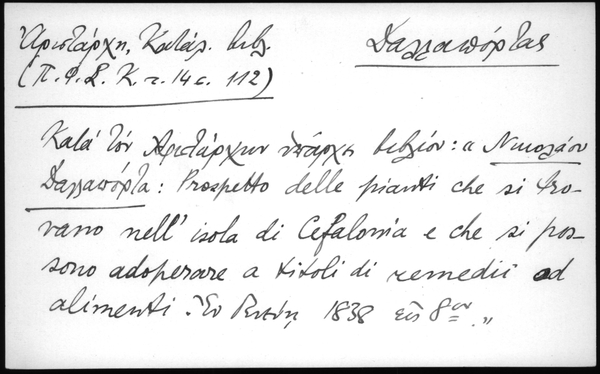 Ἀριστάρχη, Κατάλ. βιβλ. Δαλλαπόρτας
(Π.Φ.Σ.Κ. τ. 14 σ. 112)
Κατά τόν Ἀριστάρχην ὑπάρχει βιβλίον: « Νικολάου
Δαλλαπόρτα: Prospetto delle pianti che si tro-
vano nell' isola di Cefalonia e che si pos-
sono adoperare a titoli di remedii od
alimenti. Ἐν 1838 εἰς 8ον „